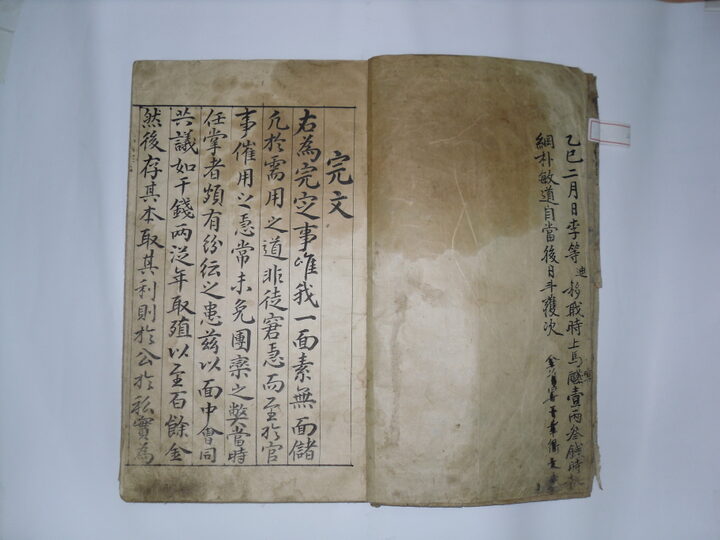 乙巳二月日李等 迪 移 戢時上馬 壹兩叁錢時執
綱朴敏道自當後日斗護次
完文
右為完定事唯我一面素無面儲
凢於需用之道非徒窘急而至於官
事催用之急常未免團欒之弊當時
任掌者頗有紛紜之患玆以面中會同
共議如干錢兩逐年取殖以至百餘金
然後存其本取其利則於公於私實為